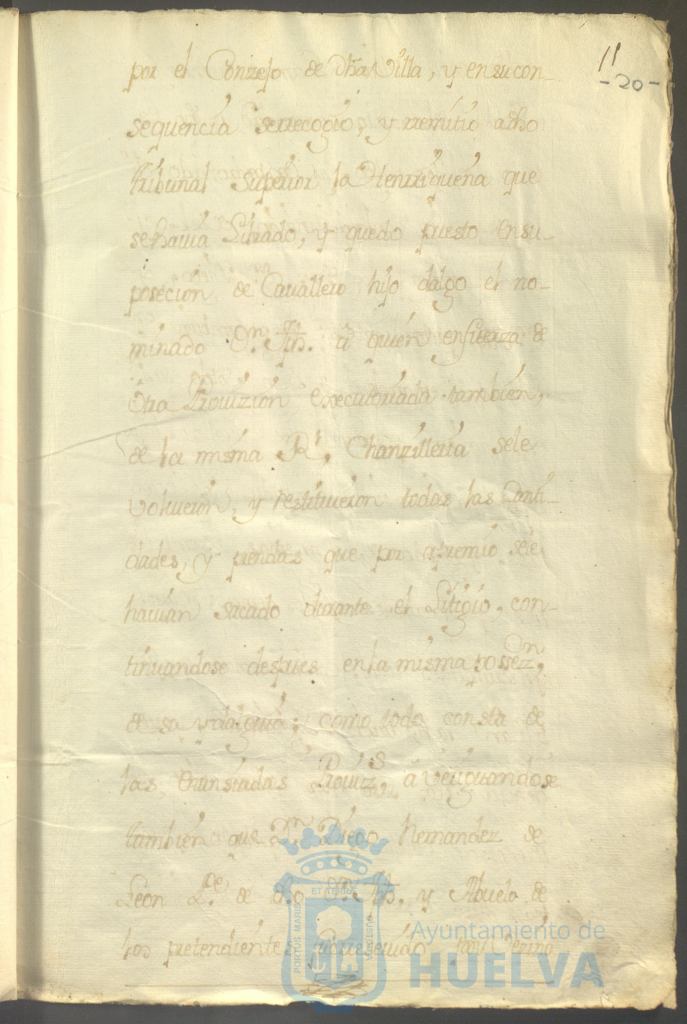 11
-20-
por el Conzejo de dha Villa, y en su con-
sequencia se recogio, y remitio a dho
tribunal Superior la Henriqueña que
se havia Librado, y quedo puesto en su
posecion de Cavallero hijo dalgo el no-
minado Dn. Jph. a quien en fuerza de
otra Provizion executoriada tambien,
de la misma Rl. Chanzilleria se le
volvieron, y restituieron todas las Canti-
dades, y prendas que por apremio se le
havian sacado durante el Litigio, con-
tinuandose despues en la misma possezn.
de su ydalguia; como todo consta de
las enunsiadas Provizs. aveiguandose
tambien que Dn. Diego Hernandez de
Leon Pe. de dho Dn. Jph., y Abuelo de
los pretendientes
Ayuntamiento de
HUELVA
PORTUS MARIS